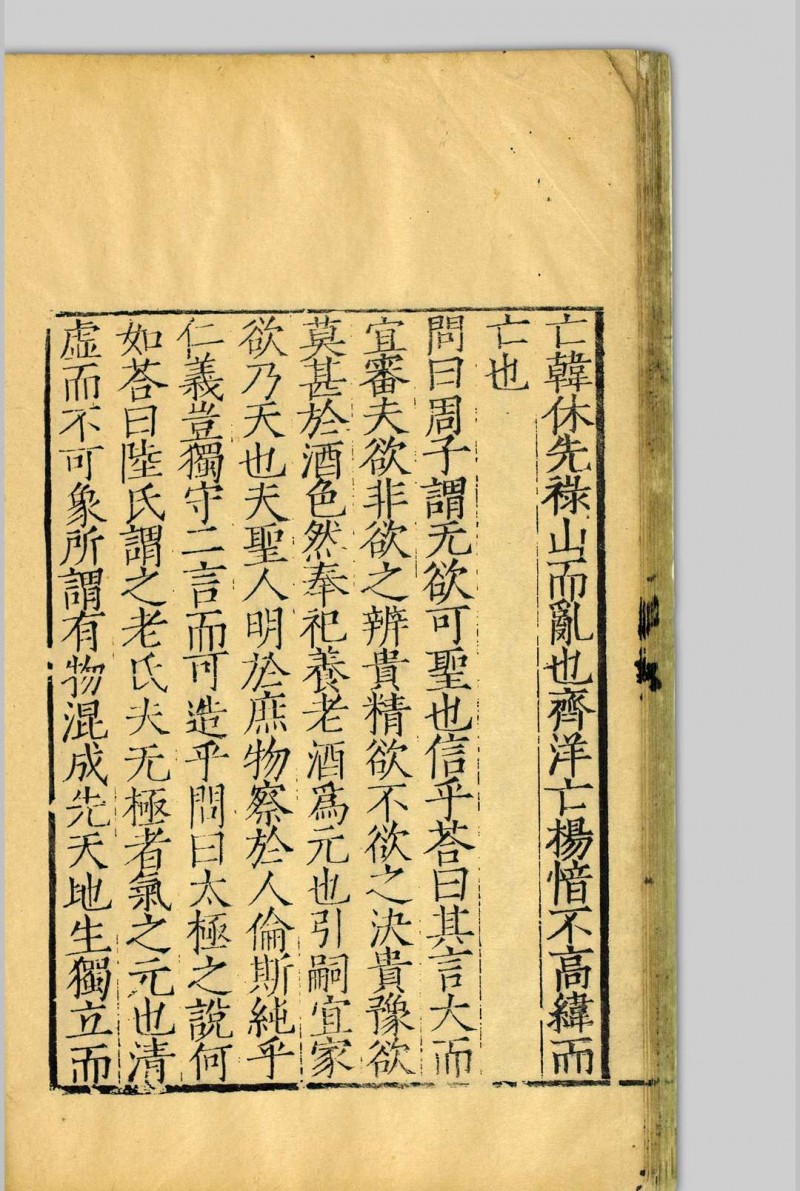 亡韓休先祿山而亂也齊洋亡楊愔不高緯而
亡也
問曰周子謂无欲可聖也信乎荅曰其言大而
宜審夫欲非欲之辨貴精欲不欲之決貴豫欲
莫甚於酒色然奉祀養老酒爲元也引嗣宜家
欲乃天也夫聖人明於庶物察於人倫斯純乎
仁義豈獨守二言而可造乎問曰太極之說何
如荅曰陸氏謂之老氏夫无極者氣之元也清
虛而不可象所謂有物混成先天地生獨立而